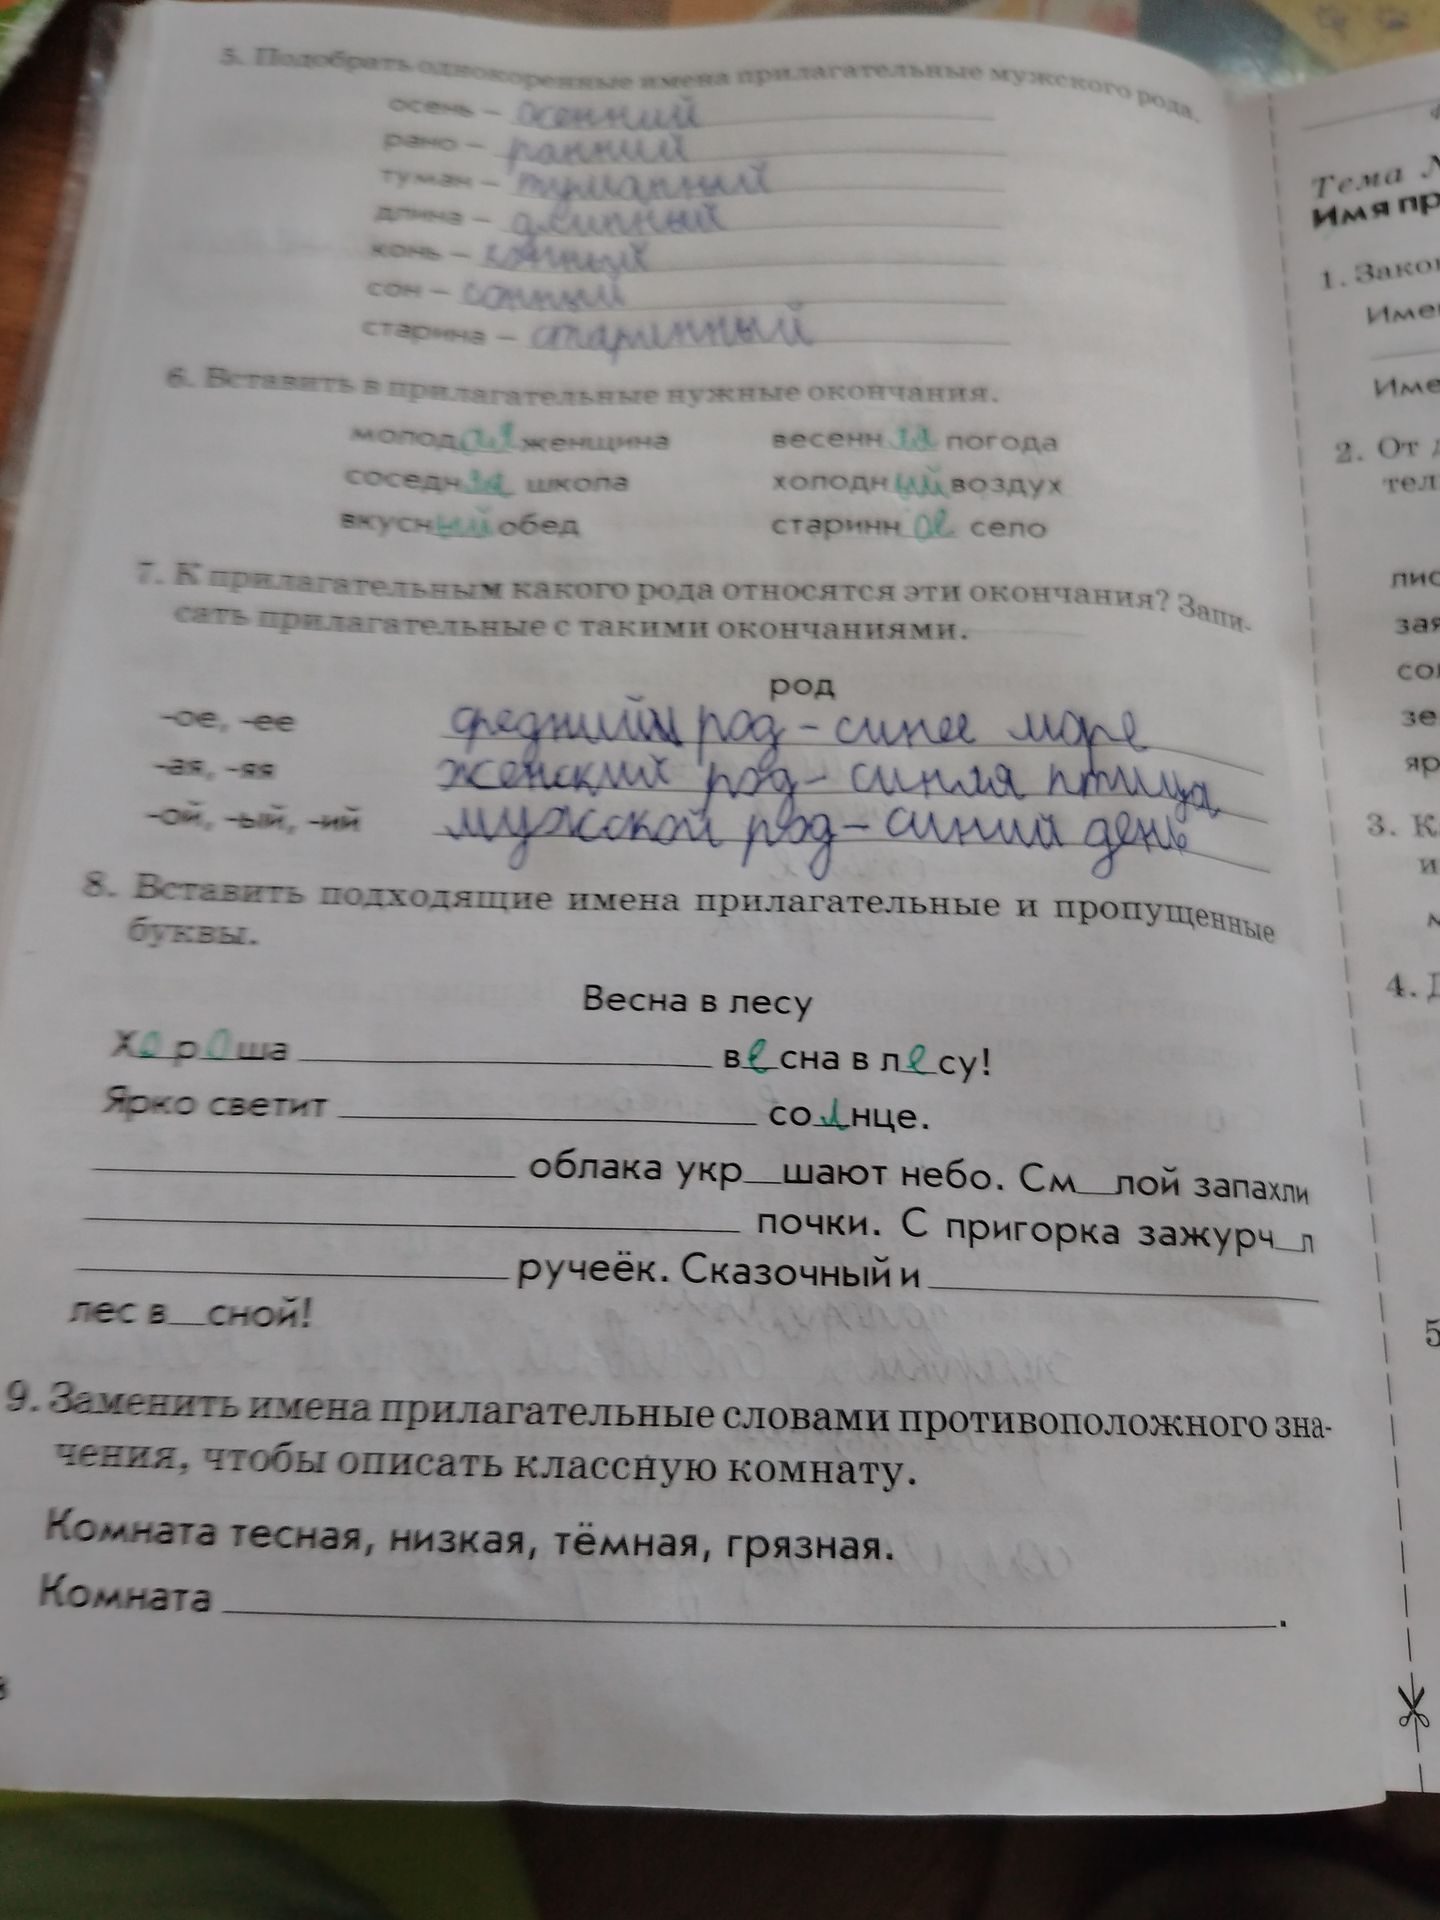 5. Подобрать однокоренные имена прилагательные мужского рода.
осень – осенний
рано – ранний
туман – туманный
длина – длинный
конь – конный
сон – сонный
старина – старинный
6. Вставить в прилагательные нужные окончания.
молодая женщина весенняя погода
соседняя школа холодный воздух
вкусный обед старинное село
7. К прилагательным какого рода относятся эти окончания? Запи-
сать прилагательные с такими окончаниями.
род
-ое, -ее средний род – синее море
-ая, -яя женский род – синяя птица
-ой, -ый, -ий мужской род – синий день
8. Вставить подходящие имена прилагательные и пропущенные
буквы.
Весна в лесу
Хороша ___ весна в лесу!
Ярко светит ___ солнце.
___ облака укр__шают небо. См__лой запахли
___ почки. С пригорка зажурч__л
___ ручеёк. Сказочный и ___
лес в__сной!
9. Заменить имена прилагательные словами противоположного зна-
чения, чтобы описать классную комнату.
Комната тесная, низкая, тёмная, грязная.
Комната ___.
Тема
Имя пр
1. Закон
Имен
Име
2. От
тел
лис
зая
со
зе
яр
3. К
и
4. Д
5